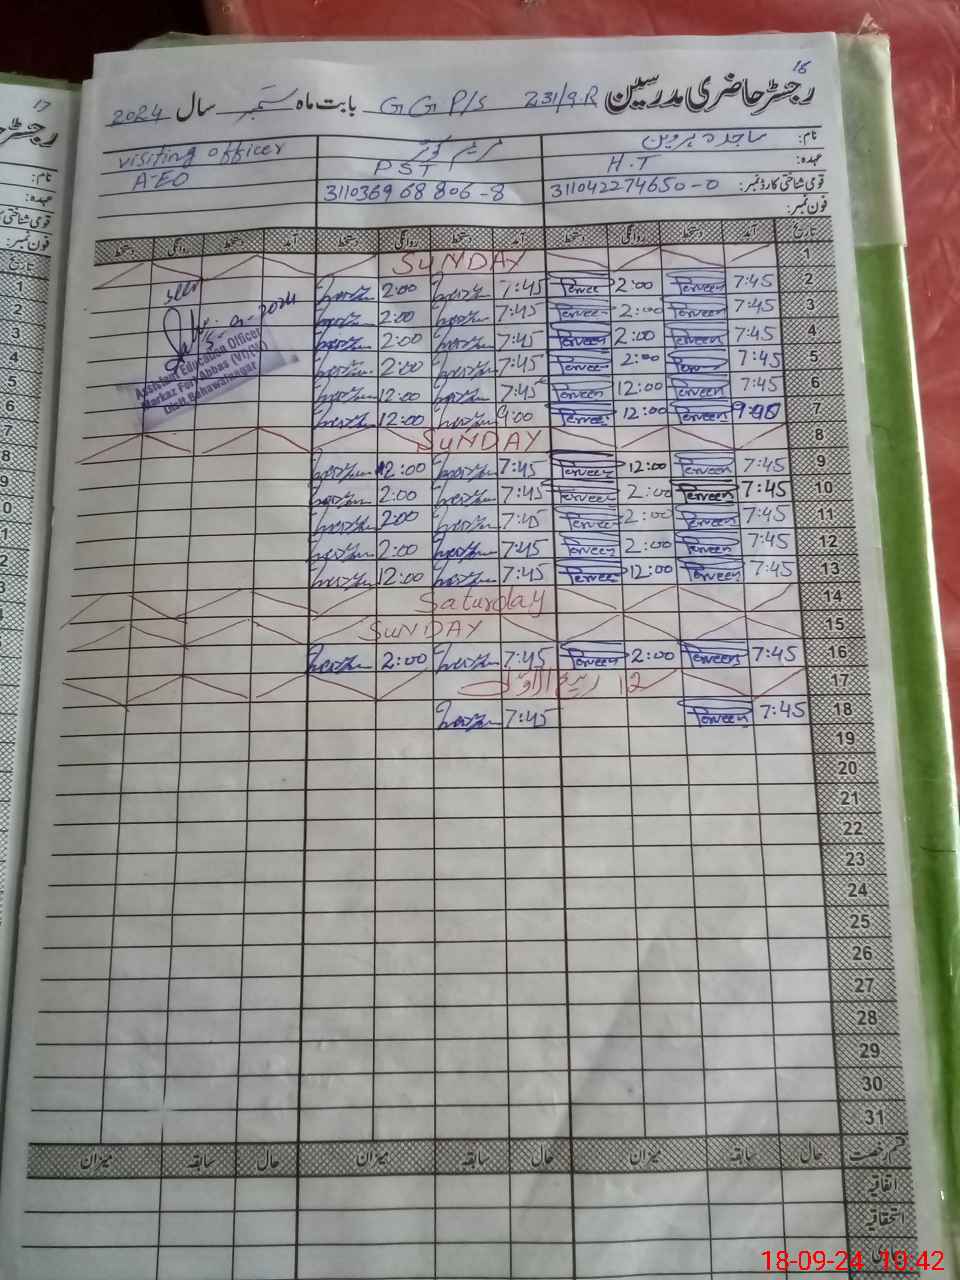 16
رجسٹر حاضری مدرسین 231/9R GGP/S بابت ماہ ستمبر سال 2024
نام: ساجدہ پروین
visiting officer
عہدہ: H.T
PST
A-EO
قومی شناختی کارڈ نمبر: 311042274650-0
3110369 68 806-8
فون نمبر:
تاریخ آمد دستخط روانگی دستخط آمد دستخط روانگی دستخط آمد دستخط روانگی دستخط
1 SUNDAY
2 7:45 Perveen 2:00 Perveen 7:45 2:00
3 7:45 Perveen 2:00 Perveen 7:45 2:00
4 7:45 Perveen 2:00 Perveen 7:45 2:00
5 7:45 Perveen 2:00 Perveen 7:45 2:00
6 7:45 Perveen 12:00 Perveen 7:45 12:00
7 Perveen 12:00 Perveen 9:00 12:00
Assistant Education Officer
Markaz
Distt Bahawalnagar
8 SUNDAY
9 7:45 Perveen 12:00 Perveen 7:45 12:00
10 7:45 Perveen 2:00 Perveen 7:45 2:00
11 7:45 Perveen 2:00 Perveen 7:45 2:00
12 7:45 Perveen 2:00 Perveen 7:45 2:00
13 7:45 Perveen 12:00 Perveen 7:45 12:00
14 Saturday
15 SUNDAY
16 7:45 Perveen 2:00 Perveen 7:45 2:00
17 12 ربیع الاول
18 7:45 Perveen 7:45
19
20
21
22
23
24
25
26
27
28
29
30
31
قسم رخصت حال سابقہ میزان حال سابقہ میزان حال سابقہ میزان
اتفاقیہ
استحقاقیہ
18-09-24 10:42
17
نام:
عہدہ:
قومی شناختی
فون نمبر:
تاریخ